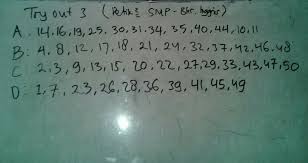 Try out 3 ( SMP -
A : 14, 16, 19, 25, 30, 31, 34, 35, 40, 44, 10, 11
B : 4, 8, 12, 17, 18, 21, 24, 32, 37, 42, 46, 48
C : 2, 3, 9, 13, 15, 20, 22, 27, 29, 33, 43, 47, 50
D : 1, 7, 23, 26, 28, 36, 39, 41, 45, 49